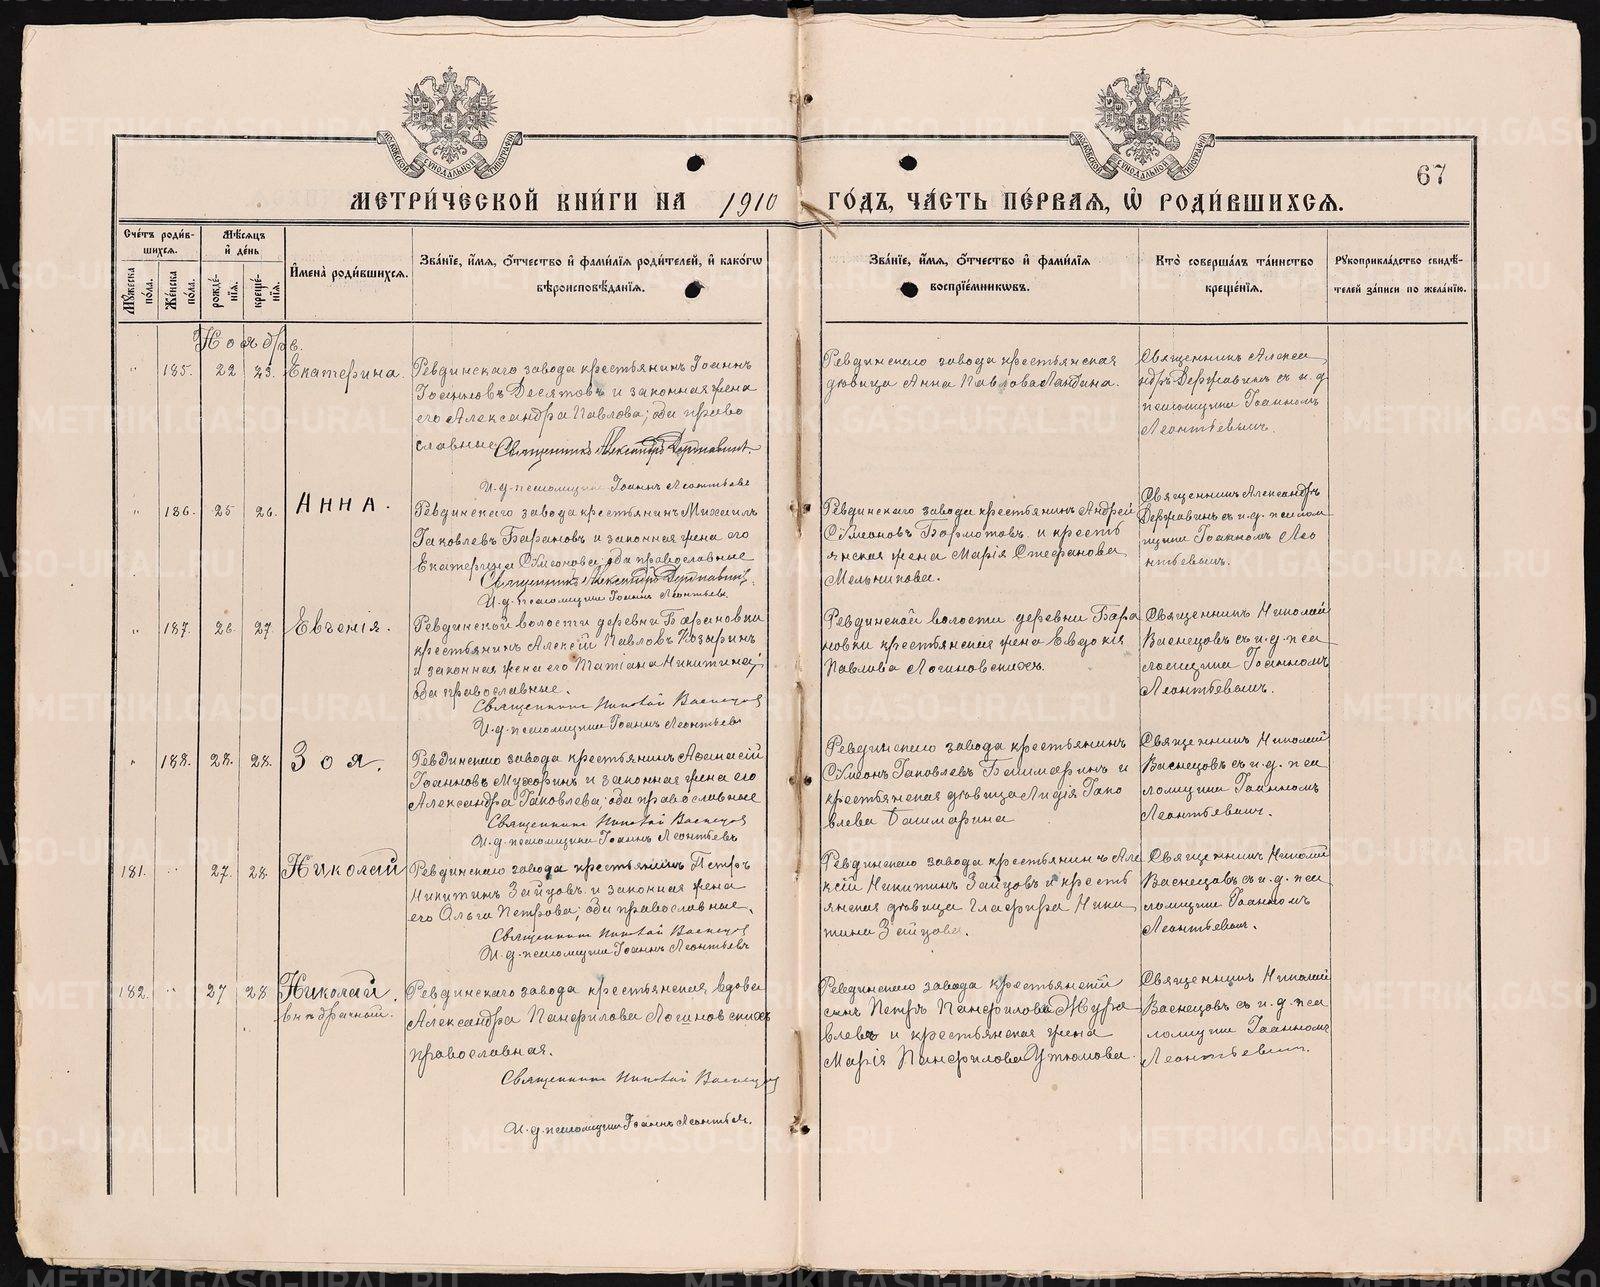 67
МЕТРИ́ЧЕСКОЙ КНИ́ГИ НА 1910 ГО́ДЪ, ЧА́СТЬ ПЕ́РВАЯ, Ѽ РОДИ́ВШИХСЯ.
Сче́тъ роди́в-
шихся.
Мꙋ́жеска по́ла.
Же́нска по́ла.
Мѣ́сяцъ и҆ де́нь
рожде́-нїя.
креще́-нїя.
И҆мена̀ роди́вшихся.
Зва́нїе, и҆́мя, ѻ҆́тчество и҆ фами́лїя роди́телей, и҆ како́гѡ
вѣроисповѣ́данїя.
Зва́нїе, и҆́мя, ѻ҆́тчество и҆ фами́лїя
воспрїе́мникѡвъ.
Кто̀ соверша́лъ та́инство
креще́нїя.
Рꙋкоприкла́дство свидѣ́-
телей за́писи по жела́нїю.
Ноябрь.
" 185. 22 23. Екатерина.
Ревдинскаго завода крестьянинъ Іоаннъ
Іоанновъ Десятовъ и законная жена
его Александра Павлова; оба право
славные
Священникъ Александръ Державинъ.
И. д. псаломщика Іоаннъ Леонтьевъ
Ревдинскаго завода крестьянская
дѣвица Анна Павлова
Священникъ Алекса
ндръ Державинъ съ и. д.
псаломщика Іоанномъ
Леонтьевымъ.
" 186. 25 26. Анна.
Ревдинскаго завода крестьянинъ Михаилъ
Іаковлевъ Барановъ и законная жена его
Екатерина Сѵмеонова; оба православные
Священникъ Александръ Державинъ.
И. д. псаломщика Іоаннъ Леонтьевъ.
Ревдинскаго завода крестьянинъ Андрей
Сѵмеоновъ Бормотовъ и кресть
янская жена Марія Стефанова
Мельникова.
Священникъ Александръ
Державинъ съ и. д. псалом
щика Іоанномъ Лео
нтьевымъ.
" 187. 26 27. Евгенія.
Ревдинской волости деревни Барановки
крестьянинъ Алексій Павловъ Козыринъ
и законная жена его Татіана Никитина;
оба православные.
Священникъ Николай Васнецовъ
И. д. псаломщика Іоаннъ Леонтьевъ
Ревдинской волости деревни Бара
новки крестьянская жена Евдокія
Павлова Логиновскихъ.
Священникъ Николай
Васнецовъ съ и. д. пса
ломщика Іоанномъ
Леонтьевымъ.
" 188. 28. 28. Зоя.
Ревдинскаго завода крестьянинъ Аѳанасій
Іоанновъ Мухоринъ и законная жена его
Александра Іаковлева; оба православные
Священникъ Николай Васнецовъ
И. д. псаломщика Іоаннъ Леонтьевъ
Ревдинскаго завода крестьянинъ
Сѵмеонъ Іаковлевъ Башмаринъ и
крестьянская дѣвица Лидія Іако
влева Башмарина
Священникъ Николай
Васнецовъ съ и. д. пса
ломщика Іоанномъ
Леонтьевымъ.
181. " 27. 28. Николай
Ревдинскаго завода крестьянинъ Петръ
Никитинъ Зайцовъ и законная жена
его Ольга Петрова; оба православные.
Священникъ Николай Васнецовъ
И. д. псаломщика Іоаннъ Леонтьевъ
Ревдинскаго завода крестьянинъ Але
ксій Никитинъ Зайцовъ и кресть
янская дѣвица Глафира Ники
тина Зайцова.
Священникъ Николай
Васнецовъ съ и. д. пса
ломщика Іоанномъ
Леонтьевымъ.
182. " 27 28 Николай.
внѣбрачный.
Ревдинскаго завода крестьянская вдова
Александра Панфилова Логиновскихъ
православная.
Священникъ Николай Васнецовъ
И. д. псаломщика Іоаннъ Леонтьевъ.
Ревдинскаго завода крестьянскій
сынъ Петръ Панфиловъ Жура
влевъ и крестьянская жена
Марія Панфилова Утюмова.
Священникъ Николай
Васнецовъ съ и. д. пса
ломщика Іоанномъ
Леонтьевымъ.
METRIKI.GASO-URAL.RU